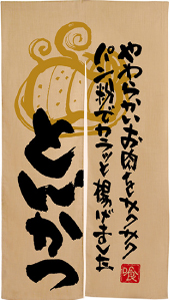 やわらかいお肉をサクサク
パン粉でカラッと揚げました
とんかつ
喰